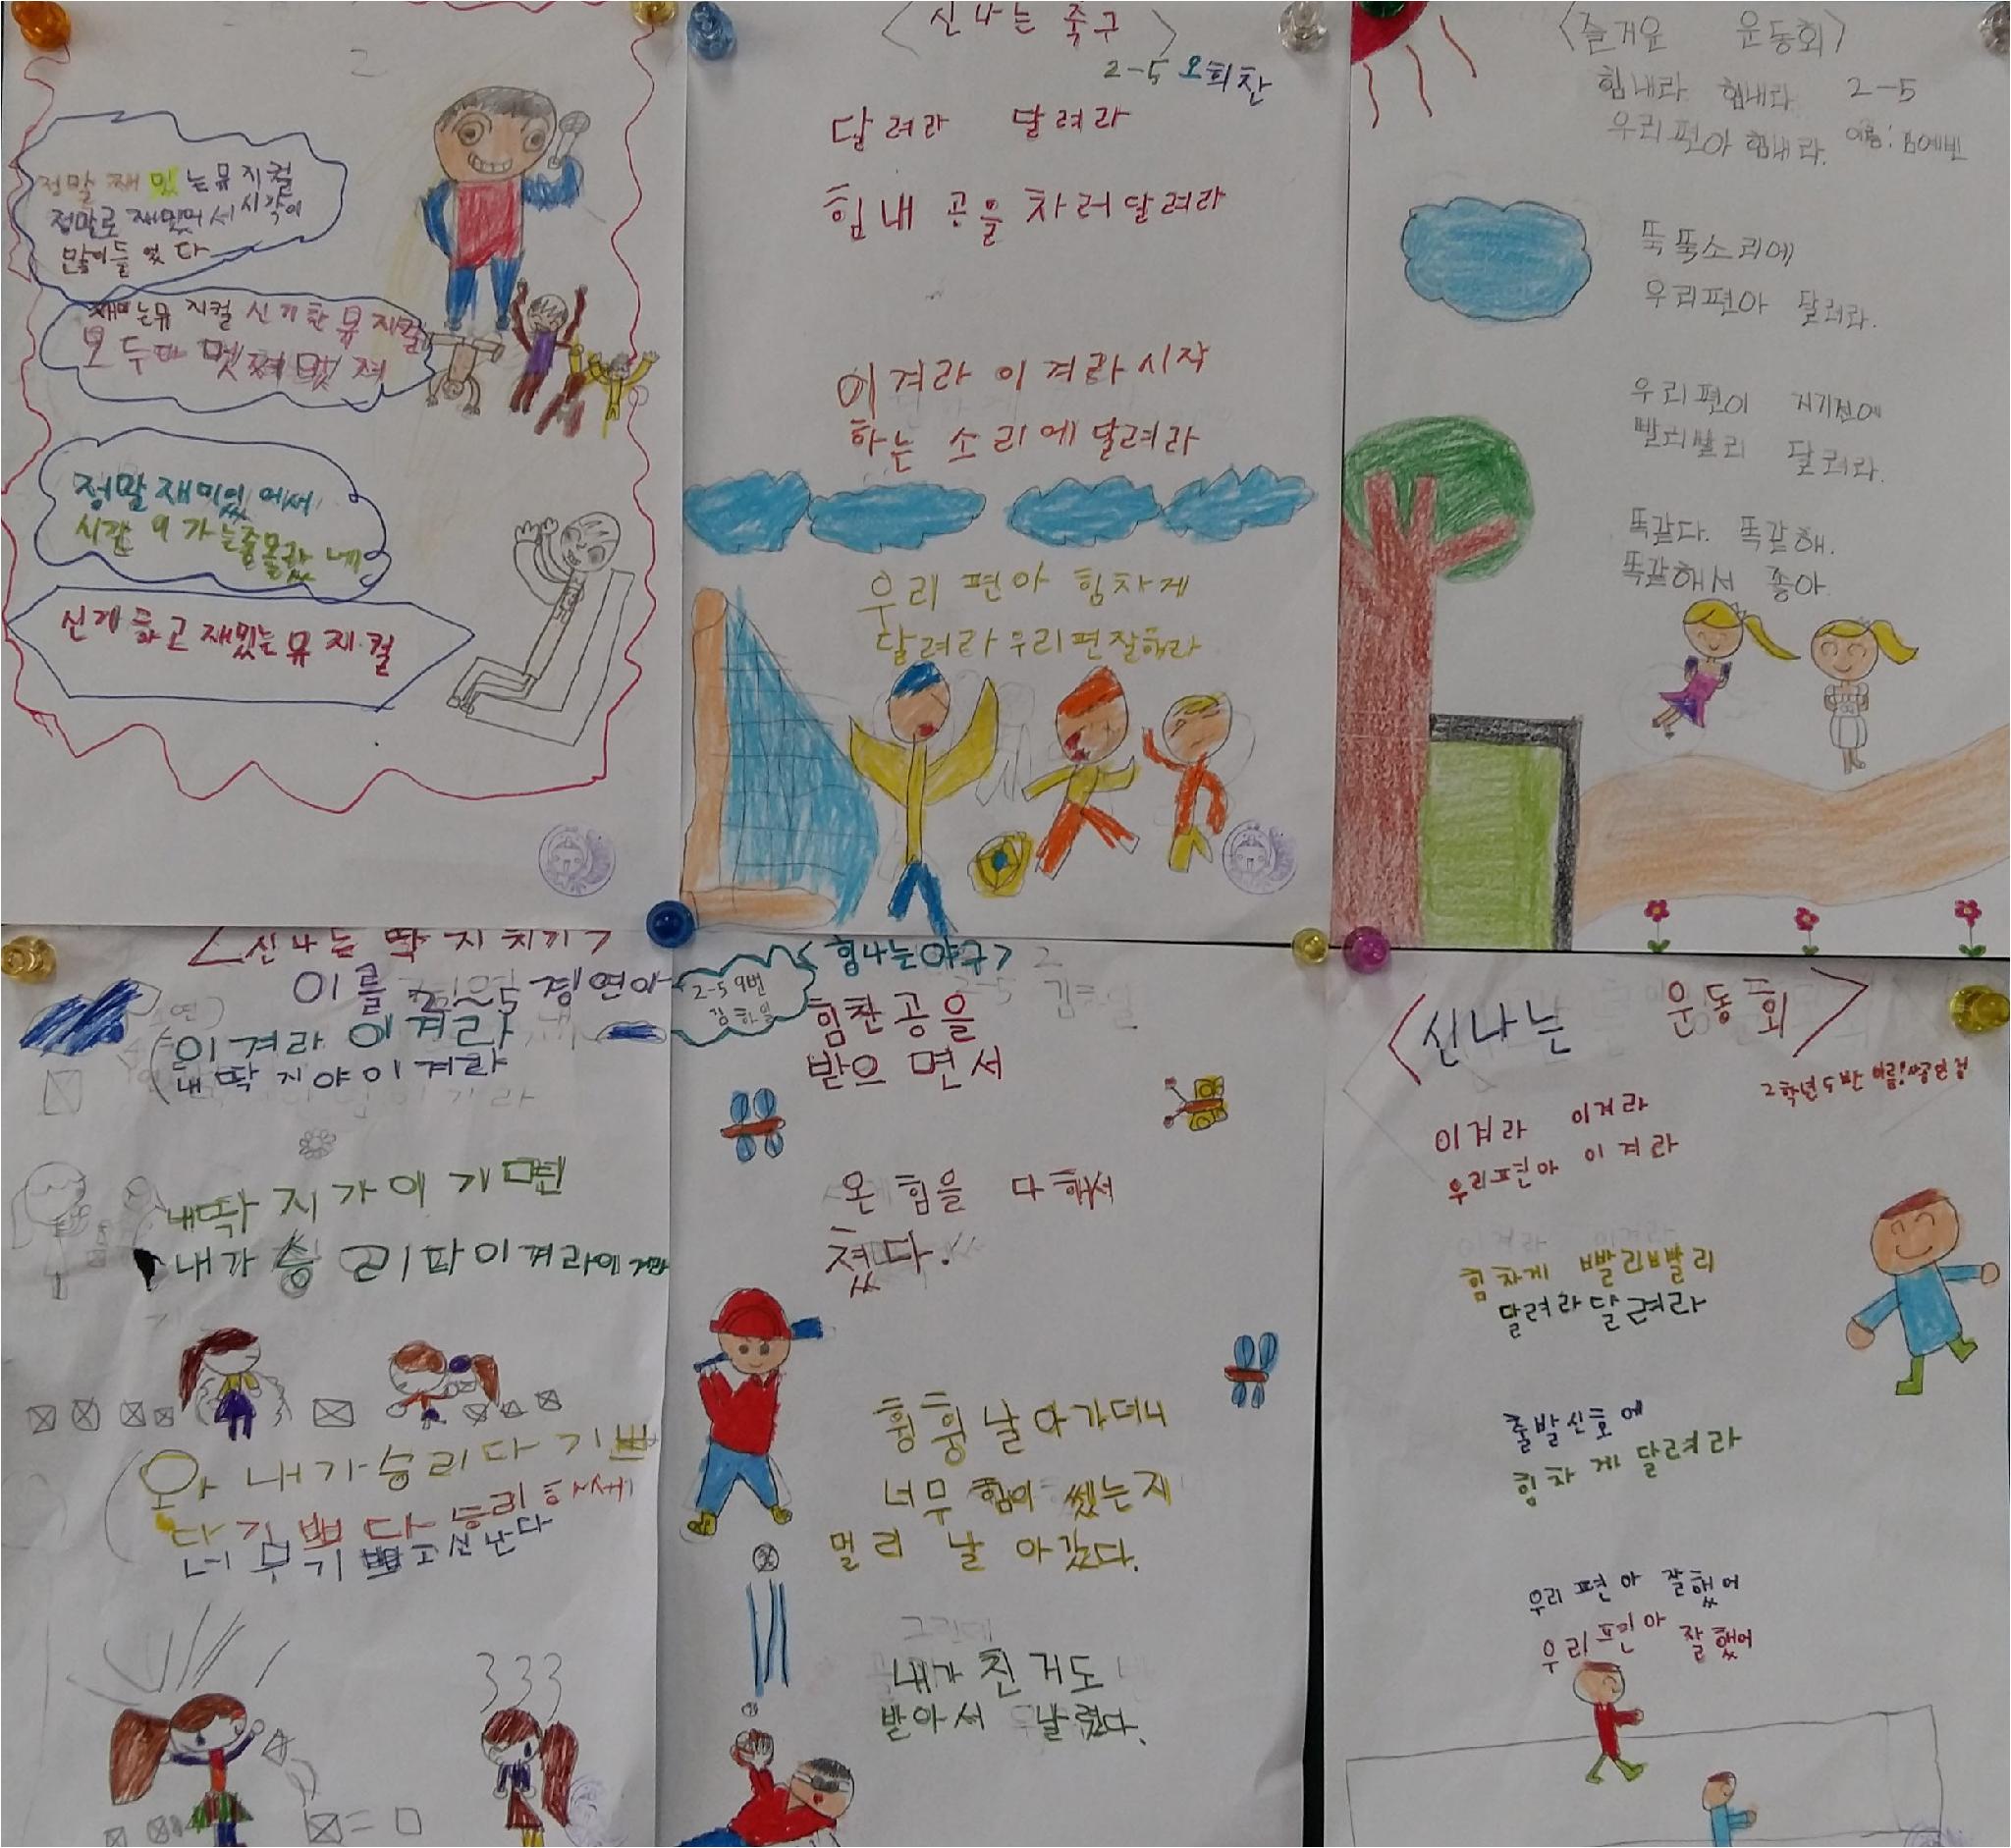 2
정말 재밌는 뮤지컬
정말로 재밌어서 시작이
많이들었다
재미는뮤지컬 신기한 뮤지컬
모두다 멋져 멋져
정말 재미있어서
시간이 가는줄몰랐네
신기하고 재밌는 뮤지컬
<신나는 축구>
2-5 오희찬
달려라 달려라
힘내 공을 차러달려라
이겨라 이겨라시작
하는 소리에달려라
우리 편아 힘차게
달려라우리편잘해라
<즐거운 운동회>
힘내라 힘내라 2-5
우리편아 힘내라. 이름: 김예빈
뚝뚝소리에
우리편아 달려라.
우리편이 지기전에
빨리빨리 달려라.
똑같다. 똑같해.
똑같해서 좋아.
<신나는 딱지치기>
이름 2-5 정연아
이겨라 이겨라
내딱지야이겨라
내딱지가이기면
내가 승리파이겨라이겨라
와 내가승리다 기쁘
다기쁘다승리하세
너무기쁘고신난다
333
<힘나는야구>
2-5 9번
김하일
힘찬공을
받으면서
온힘을 다해서
쳤다.
휭휭날아가더니
너무 힘이 쎘는지
멀리 날아갔다.
내가친거도
받아서 날렸다.
<신나는 운동회>
2학년5반 이름:
이겨라 이겨라
우리편아 이겨라
힘차게 빨리빨리
달려라달려라
출발신호에
힘차게달려라
우리편아 잘했어
우리편아 잘했어